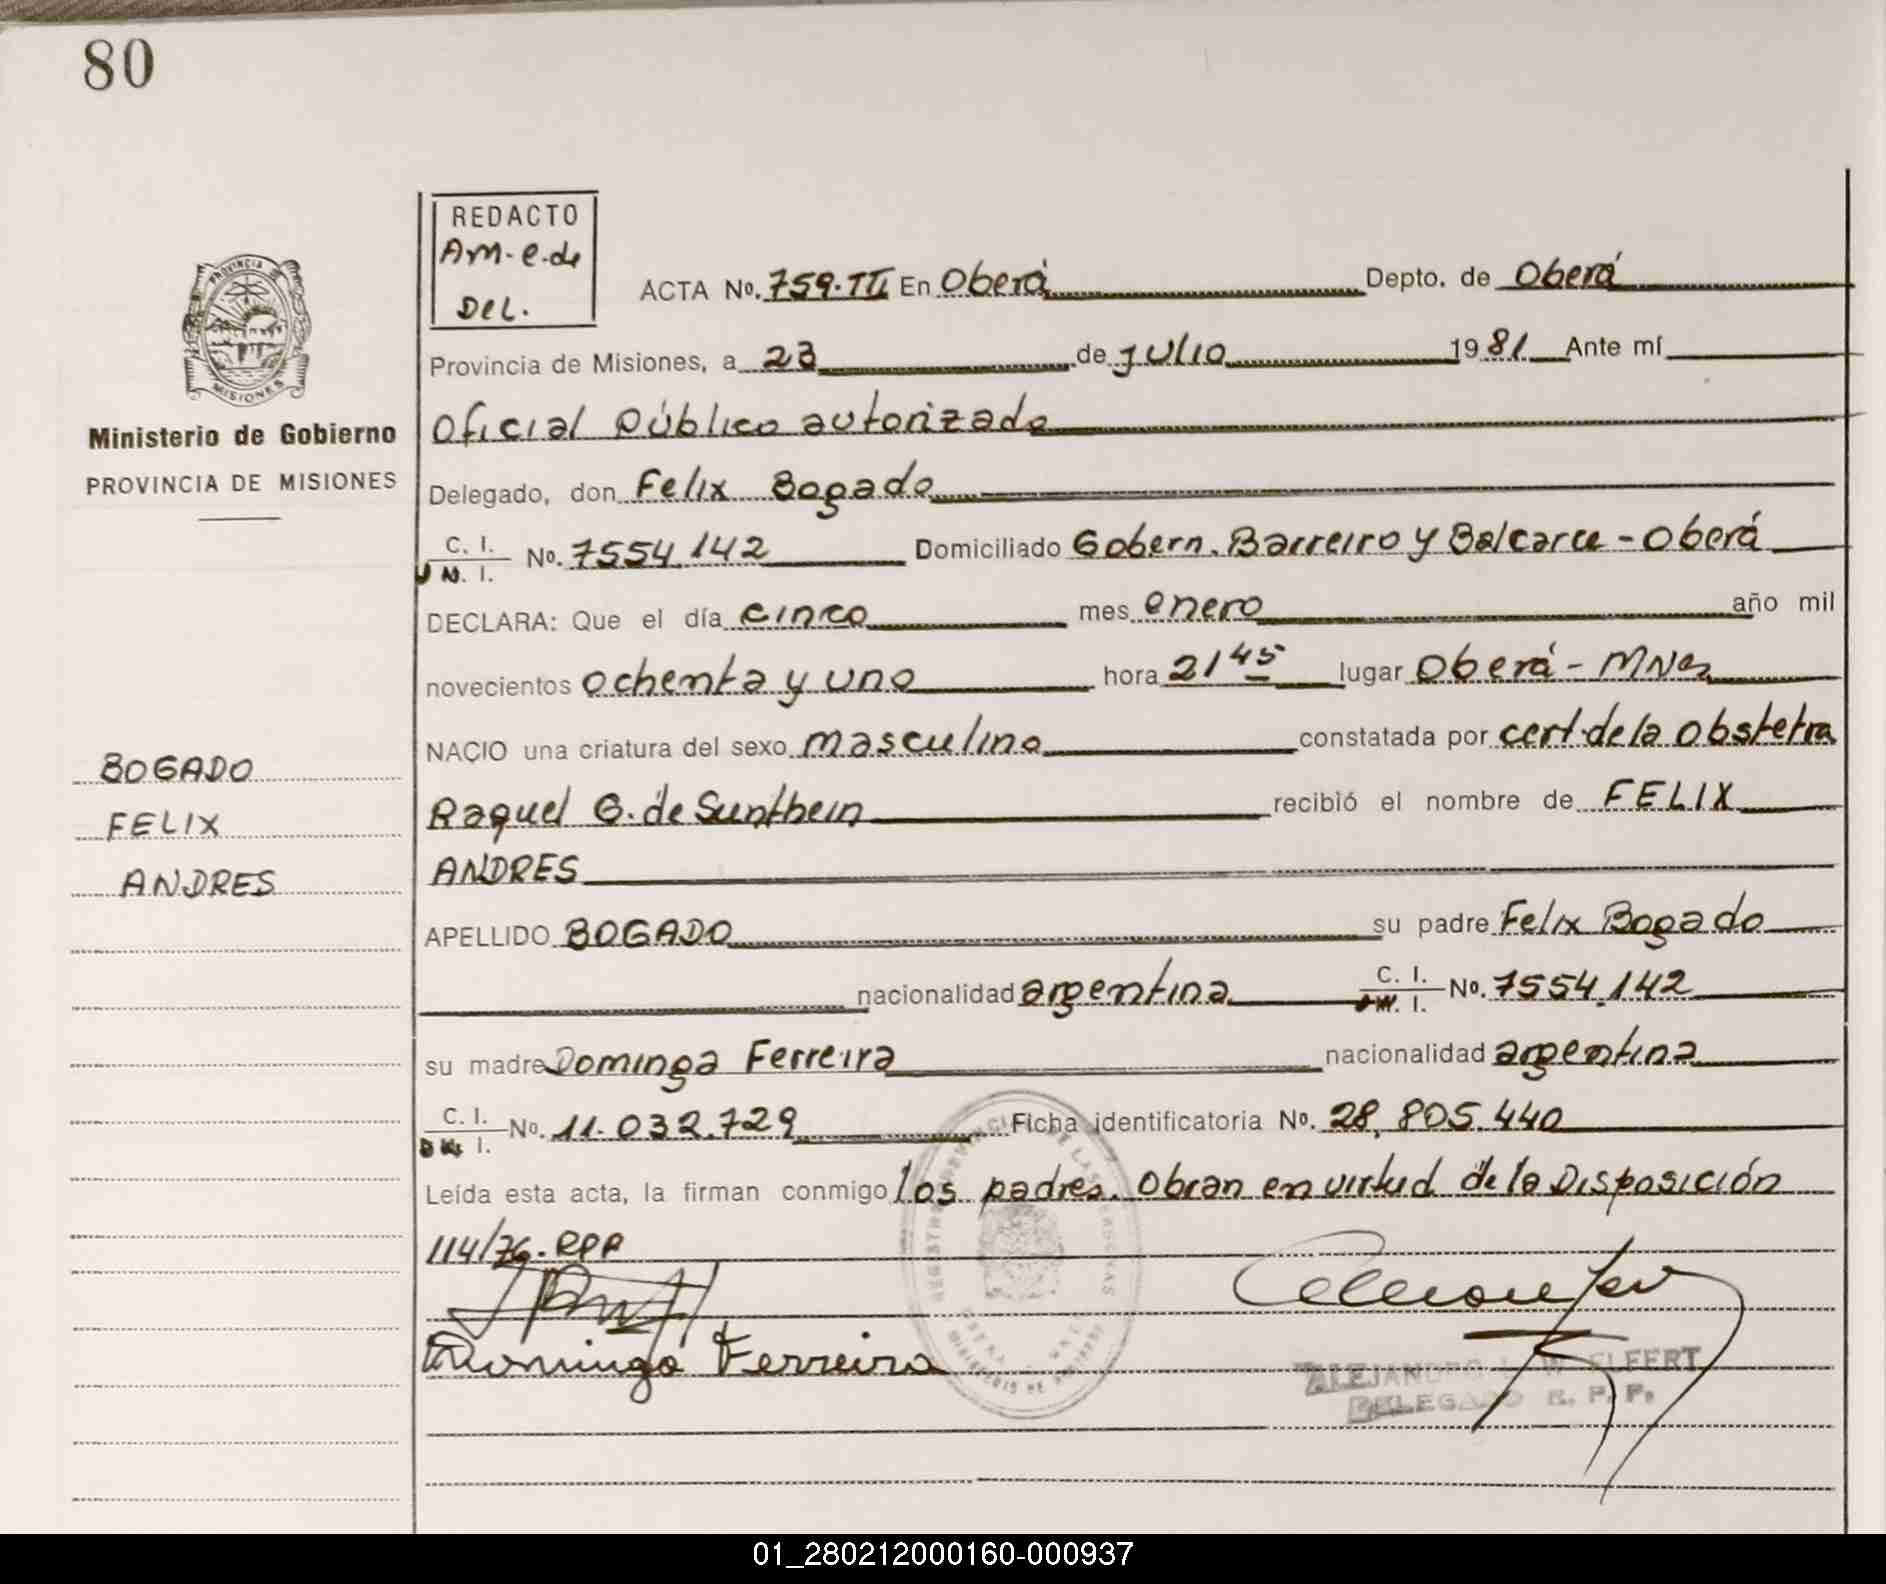 80
REDACTO
Am. e. de
Del.
PROVINCIA
MISIONES
Ministerio de Gobierno
PROVINCIA DE MISIONES
ACTA No. 759.TII En Oberá Depto. de Oberá
Provincia de Misiones, a 23 de julio 1981 Ante mí
Oficial Público autorizado
Delegado, don Felix Bogado
C. I. No. 7554.142 Domiciliado Gobern. Barreiro y Balcarce - Oberá
N. I.
DECLARA: Que el día cinco mes enero año mil
novecientos ochenta y uno hora 21 45 lugar Oberá - MNes
NACIO una criatura del sexo masculino constatada por cert. de la obstetra
BOGADO
Raquel G. de Sunthein recibió el nombre de FELIX
FELIX
ANDRES
ANDRES
APELLIDO BOGADO su padre Felix Bogado
nacionalidad argentina C. I. No. 7554.142
I.
su madre Dominga Ferreira nacionalidad argentina
C. I. No. 11.032.729 Ficha identificatoria No. 28.805.440
I.
Leída esta acta, la firman conmigo los padres. Obran en virtud de la Disposición
114/76. RPP
Dominga Ferreira
ALEJANDRO L. W. ELFERT
DELEGADO R. P. P.
01_280212000160-000937